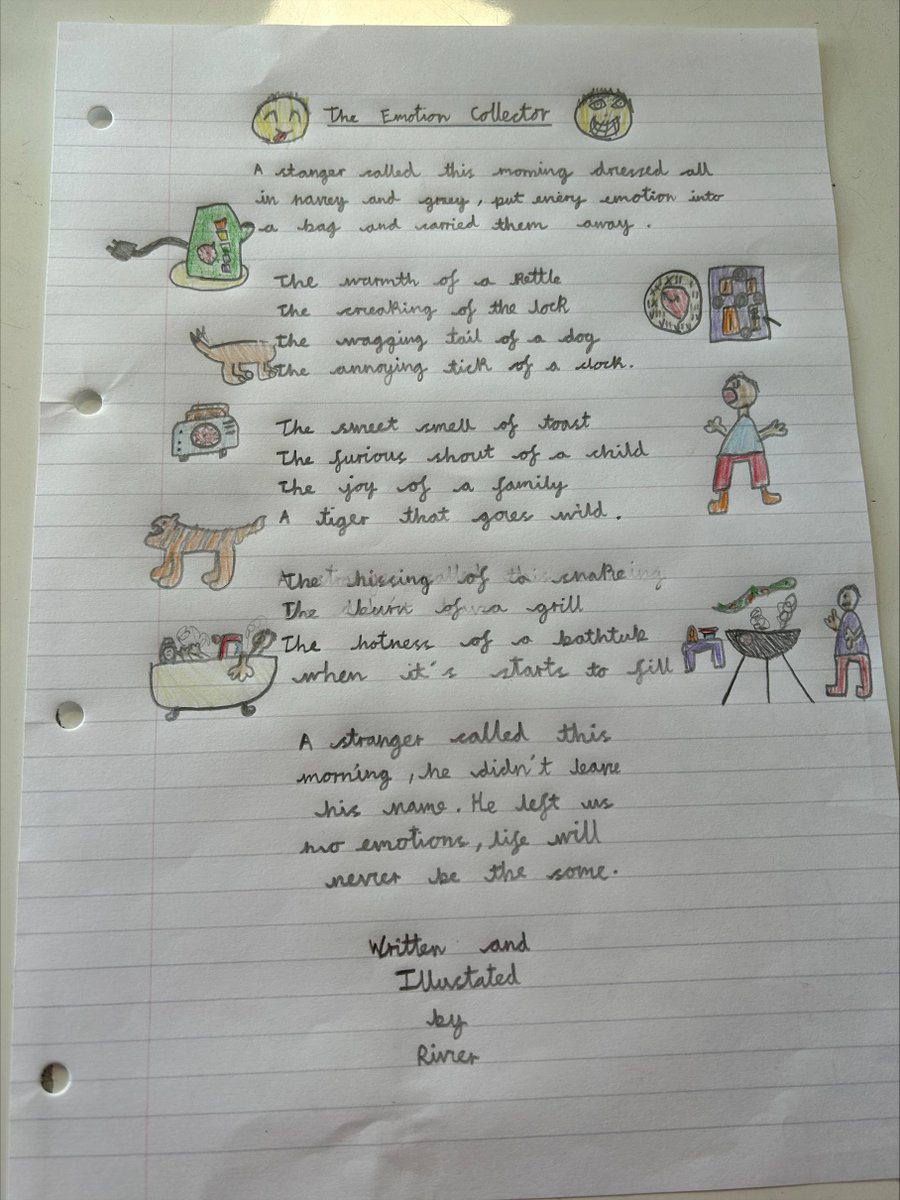 The Emotion Collector
A stanger called this morning dressed all
in navey and grey, put every emotion into
a bag and carried them away.
The warmth of a kettle
The creaking of the lock
The wagging tail of a dog
The annoying tick of a clock.
The sweet smell of toast
The furious shout of a child
The joy of a family
A tiger that goes wild.
The hissing of a snake
The burn of a grill
The hotness of a bathtub
when it's starts to fill
A stranger called this
morning, he didn't leave
his name. He left us
no emotions, life will
never be the some.
Written and
Illustated
by
River